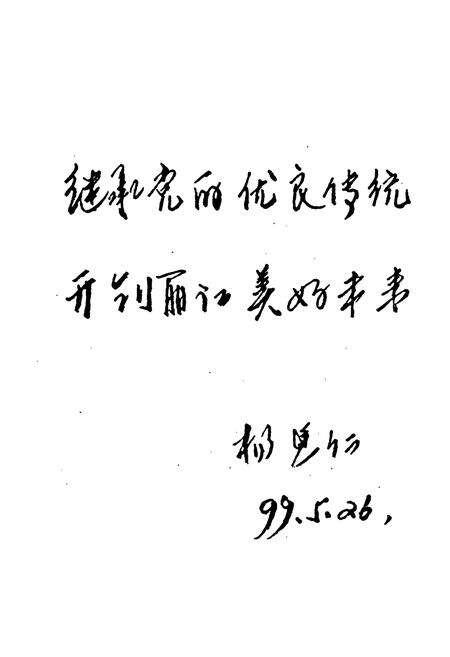 继承党的优良传统
开创丽江美好未来
杨思仁
99.5.26,